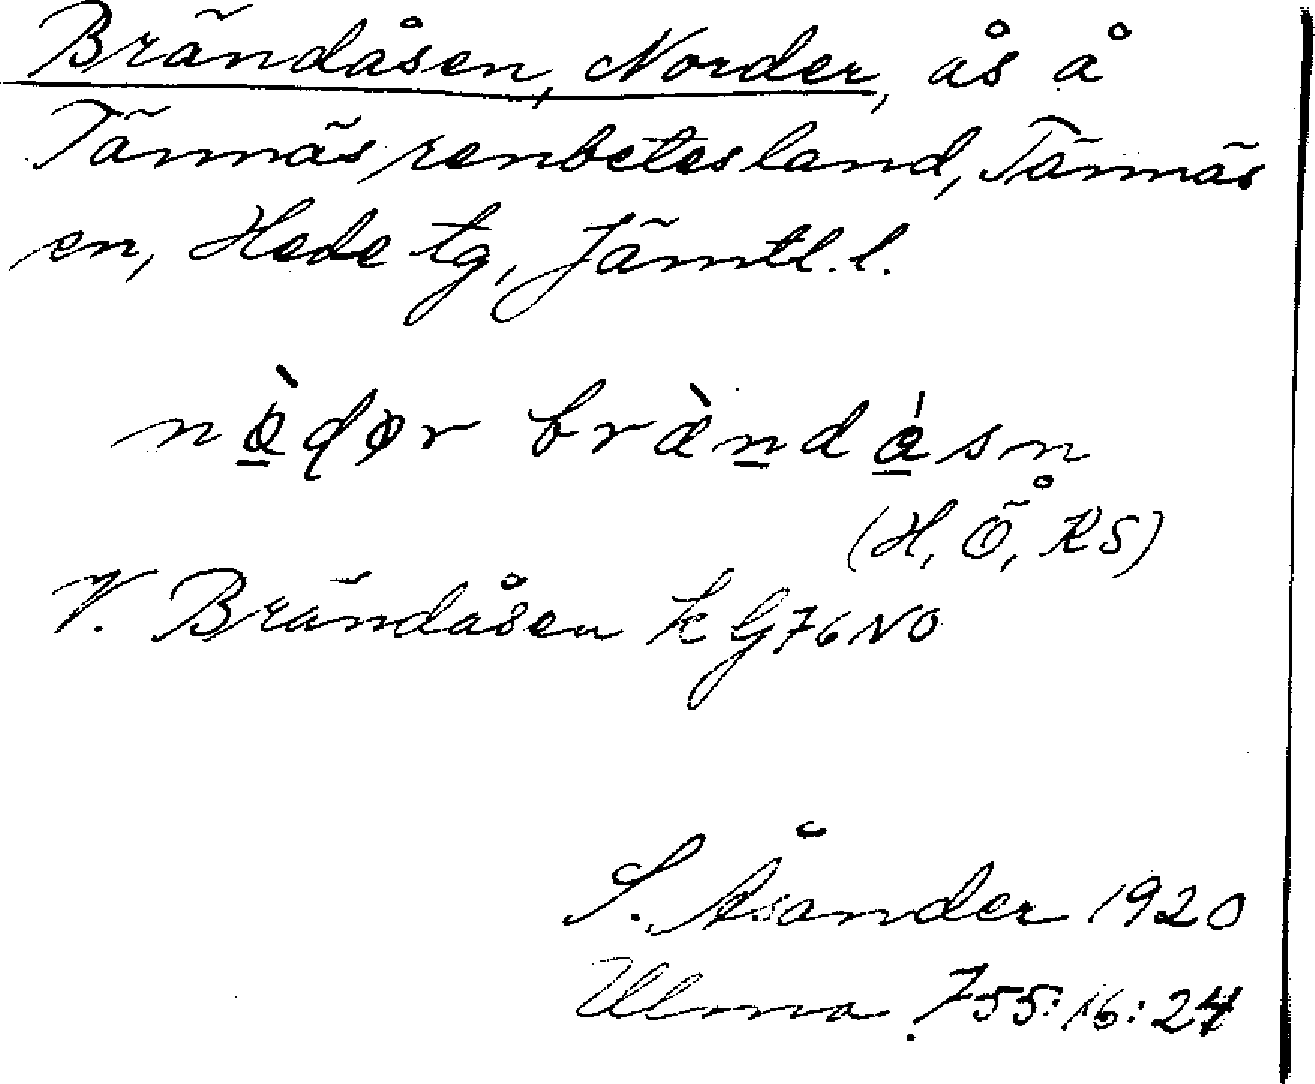 Brändåsen, Norder, ås å
Tännäs renbetesland, Tännäs
sn, Hede tg, Jämtl. l.
(H, Ö, ÅS)
V. Brändåsen k G76NO
S. Åsander 1920
Ulma 755:16:24